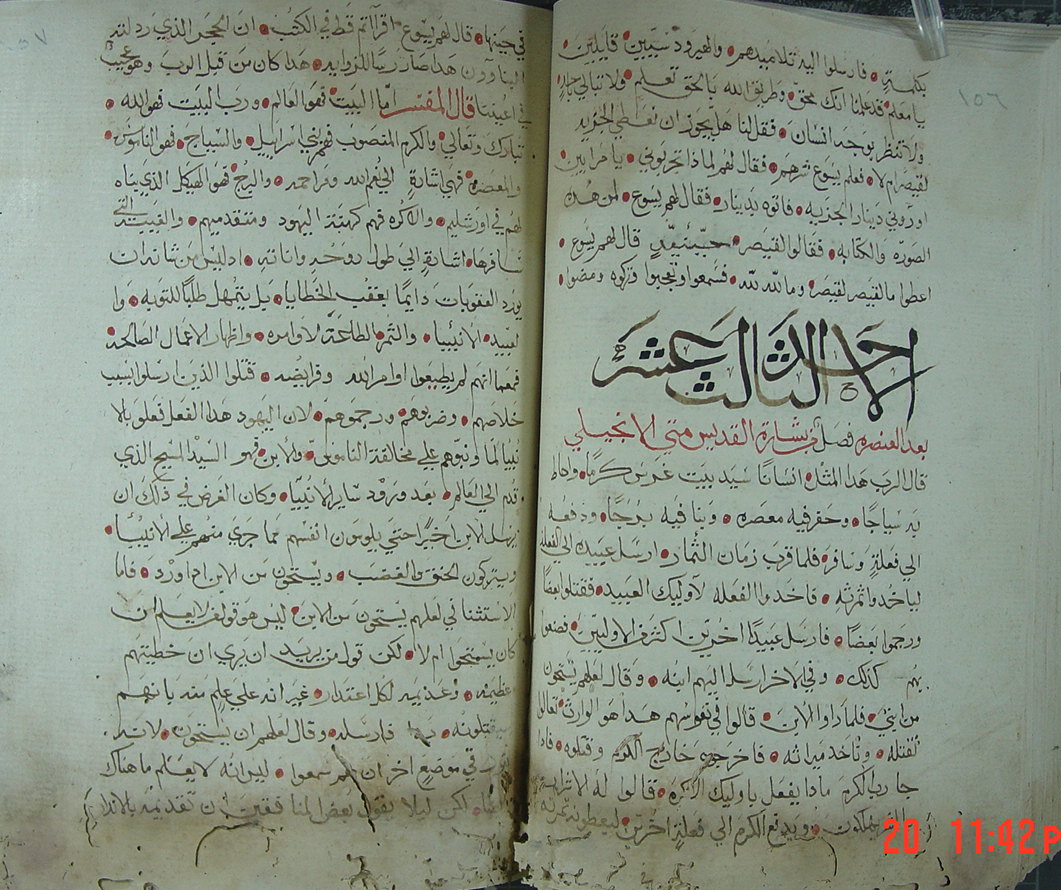 ١٥٦
بكلمة • فارسلوا اليه تلاميذهم • والهيرودسيين • قايلين
يا معلم • قد علمنا انك محق • وطريق الله بالحق تعلم • ولا تبالي باحدٍ
ولا تنظر بوجه انسان • فقل لنا هل يجوز ان نعطي الجزيه
لقيصر ام لا • فعلم يسوع شرهم • فقال لهم لماذا تجربوني • يا مرايين
اوروني دينار الجزيه • فاتوه بدينار • فقال لهم يسوع • لمن هذه
الصورة والكتابه • فقالوا لقيصر • حينيذٍ قال لهم يسوع •
اعطوا ما لقيصر لقيصر • وما لله لله • فسمعوا وتعجبوا وتركوه ومضوا •
الاحد الثالث عشر
بعد العنصره فصل من بشارة القديس متي الانجيلي
قال الرب هذا المثل • انسانًا سيد بيت غرس كرمًا • واحاط
به سياجًا • وحفر فيه معصره • وبنا فيه برجًا • ودفعه
الي فعلةٍ وسافر • فلما قرب زمان الثمار • ارسل عبيده الي الفعله
لياخذوا ثمرته • فاخذوا الفعله لاوليك العبيد • فقتلوا بعضًا
ورجموا بعضًا • فارسل عبيدًا اخرين اكثر من الاولين • فصنعوا
بهم كذلك • وفي الاخر ارسل اليهم ابنه • وقال لعلهم يستحون
من ابني • فلما راوا الابن • قالوا في نفوسهم هذا هو الوارث • تعالوا
نقتله • وناخذ ميراثه • فاخرجوه خارج الكرم وقتلوه • فاذا
جا رب الكرم ماذا يفعل باوليك الاكره • قالوا له الاشرار
يهلكون • ويدفع الكرم الي فعلةٍ اخرين • ليعطونه ثمرته
في حينها • قال لهم يسوع • اقراتم قط في الكتب • ان الحجر الذي رذلته
البناوون هذا صار راسًا للزوايه • هذا كان من قبل الرب وهو عجيب
في اعيننا قال المفسر اما البيت • فهو العالم • ورب البيت فهو الله •
تبارك وتعالي • والكرم المنصوب فهم بني اسراييل • والسياج • فهو الناموس •
والمعصره • فهي اشارة الي نعم الله ومراحمه • والبرج • فهو الهيكل الذي بناه
لهم في اورشليم • والاكره فهم كهنة اليهود ومتقدميهم • والغيبة التي
سافرها • اشارة الي طول روحه واناته • اذ ليس من شانه ان
يورد العقوبات دايمًا بعقب الخطايا • بل يتمهل طلبًا للتوبه • وا
لعبيد • الانبيا • والثمر • الطاعة لاوامره • واظهار الاعمال الصالحة
فمعما انهم لم يطيعوا اوامر الله وفرايضه • قتلوا الذين ارسلوا بسبب
خلاصهم • وضربوهم • ورجموهم • لان اليهود هذا الفعل فعلوا بالا
نبيا لما وبخوهم علي مخالفة الناموس • والابن • فهو السيد المسيح الذي
قدم الي العالم • بعد ورود ساير الانبيا • وكان الغرض في ذلك ان
يرسل الابن اخيرًا حتي يلومون انفسهم مما جري منهم علي الانبيا •
ويتركون الحنق والغضب • ويستحون من الابن اذا ورد • فاما
الاستثنا في لعلهم يستحون من الابن • ليس هو قول من لا يعلم ان
كان يستحوا ام لا • لكن قول من يريد ان يري ان خطيتهم
عظيمه • وعديمه لكل اعتذار • غير انه علي علم منه بانهم
سيقتلونه • فارسله • وقال لعلهم ان يستحون • لانه
في موضعٍ اخر ان هم سمعوا • ليس انه لا يعلم ما هناك
لكن ليلا يقول بعض الناس ان تقديمه بالانذا